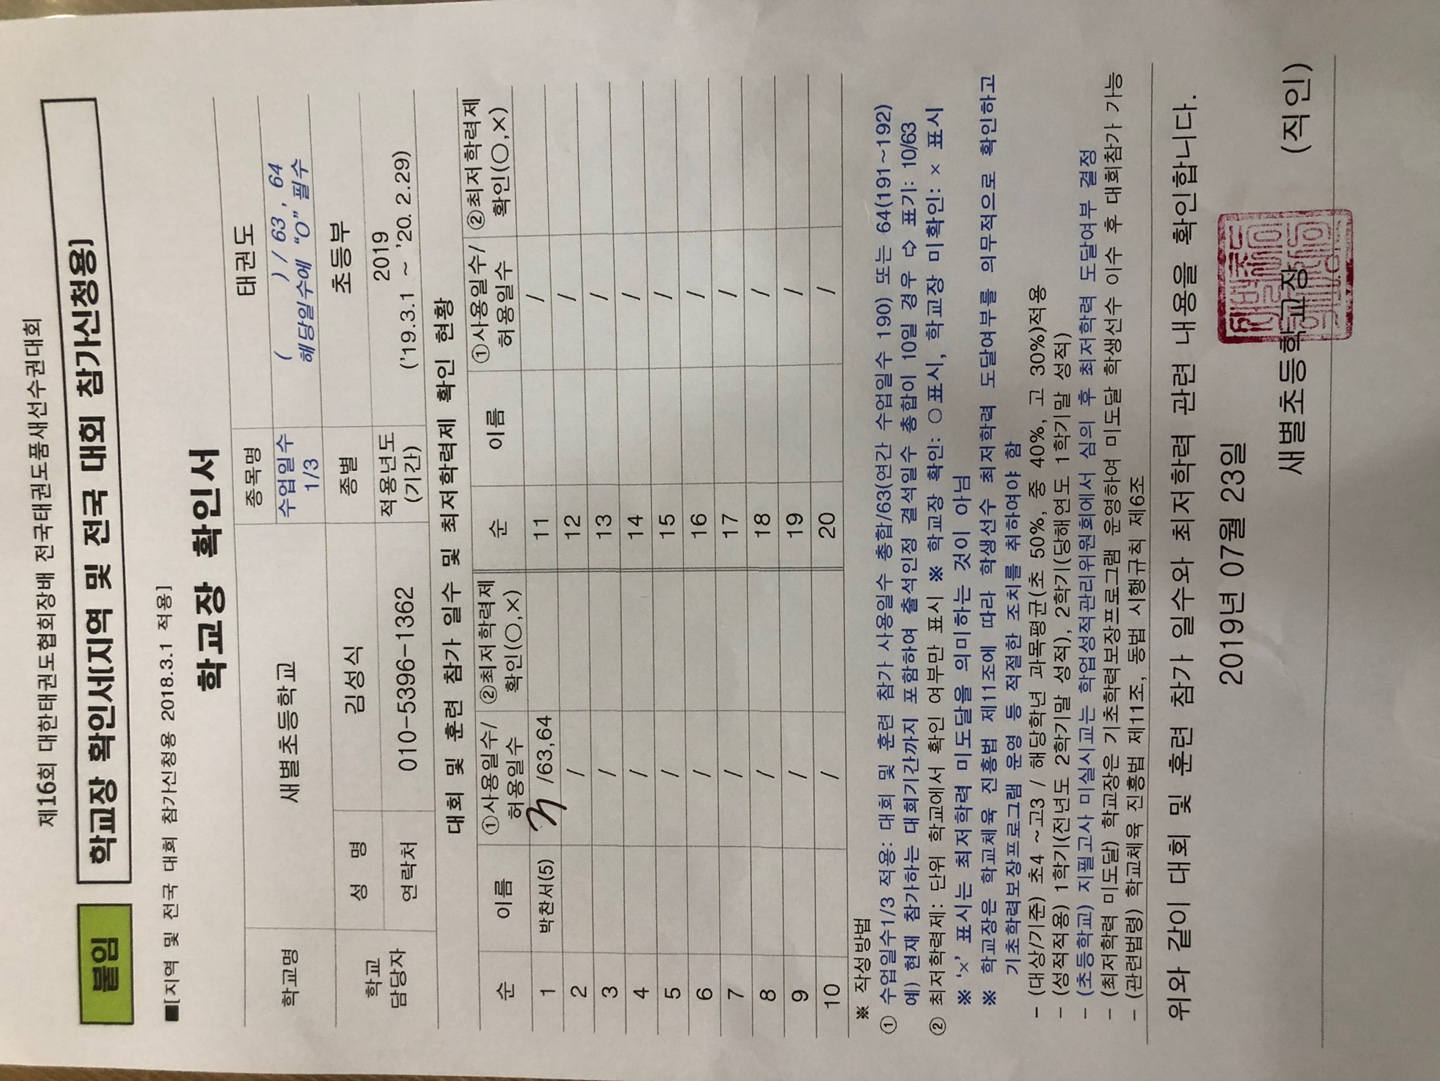 제16회 대한태권도협회장배 전국태권도품새선수권대회
붙임 학교장 확인서[지역 및 전국 대회 참가신청용]
■[지역 및 전국 대회 참가신청용 2018.3.1 적용]
학교장 확인서
학교명 새별초등학교 종목명 태권도
수업일수 1/3 ( ) / 63 , 64
해당일수에 "O" 필수
학교 담당자 성 명 김성식 종별 초등부
연락처 010-5396-1362 적용년도 (기간) 2019
('19.3.1 ~ '20. 2.29)
대회 및 훈련 참가 일수 및 최저학력제 확인 현황
순 이름 ①사용일수/허용일수 ②최저학력제 확인(○,×) 순 이름 ①사용일수/허용일수 ②최저학력제 확인(○,×)
1 박찬서(5) /63,64 11 /
2 / 12 /
3 / 13 /
4 / 14 /
5 / 15 /
6 / 16 /
7 / 17 /
8 / 18 /
9 / 19 /
10 / 20 /
※ 작성방법
① 수업일수1/3 적용: 대회 및 훈련 참가 사용일수 총합/63(연간 수업일수 190) 또는 64(191~192)
예) 현재 참가하는 대회기간까지 포함하여 출석인정 결석일수 총합이 10일 경우 ⇨ 표기: 10/63
② 최저학력제: 단위 학교에서 확인 여부만 표시 ※ 학교장 확인: ○표시, 학교장 미확인: × 표시
※ '×' 표시는 최저학력 미도달을 의미하는 것이 아님
※ 학교장은 학교체육 진흥법 제11조에 따라 학생선수 최저학력 도달여부를 의무적으로 확인하고
기초학력보장프로그램 운영 등 적절한 조치를 취하여야 함
- (대상/기준) 초4 ~고3 / 해당학년 과목평균(초 50%, 중 40%, 고 30%)적용
- (성적적용) 1학기(전년도 2학기말 성적), 2학기(당해연도 1학기말 성적)
- (초등학교) 지필고사 미실시교는 학업성적관리위원회에서 심의 후 최저학력 도달여부 결정
- (최저학력 미도달) 학교장은 기초학력보장프로그램 운영하여 미도달 학생선수 이수 후 대회참가 가능
- (관련법령) 학교체육 진흥법 제11조, 동법 시행규칙 제6조
위와 같이 대회 및 훈련 참가 일수와 최저학력 관련 내용을 확인합니다.
2019년 07월 23일
새별초등학교장 (직인)